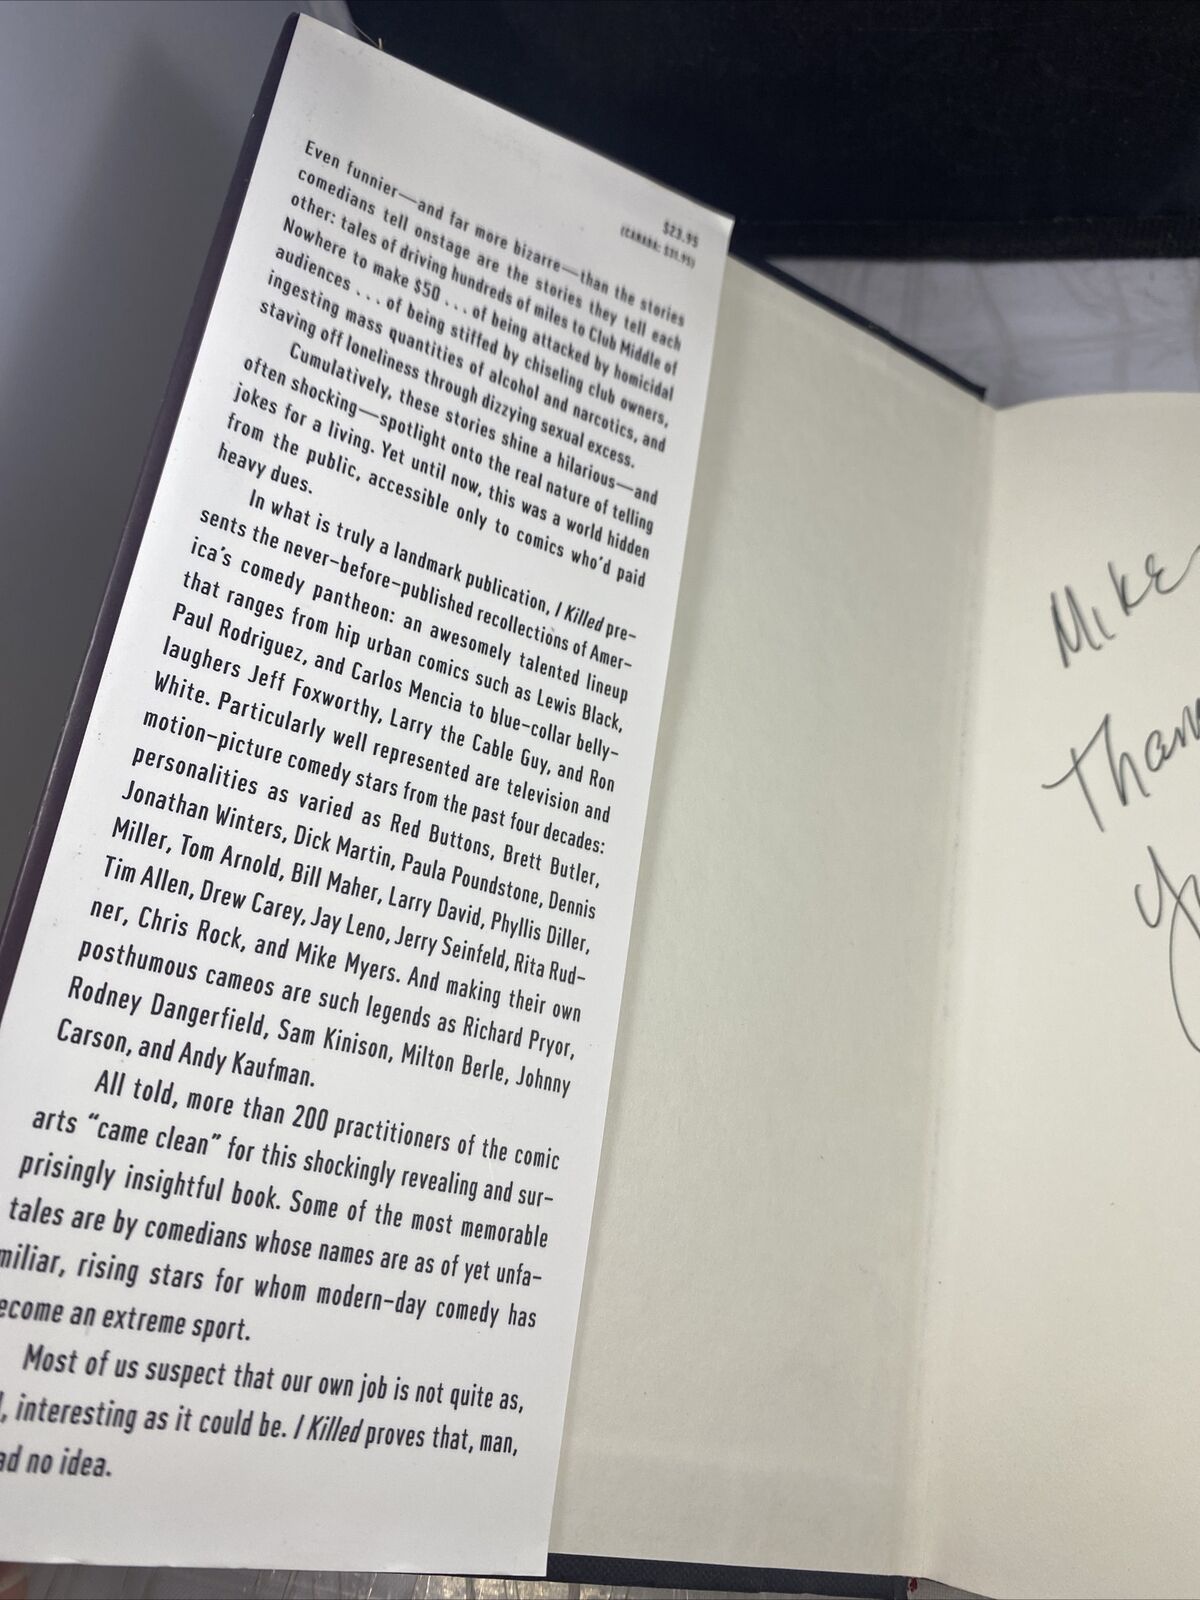 $23.95
(CANADA: $31.95)
Even funnier—and far more bizarre—than the stories
comedians tell onstage are the stories they tell each
other: tales of driving hundreds of miles to Club Middle of
Nowhere to make $50 . . . of being attacked by homicidal
audiences . . . of being stiffed by chiseling club owners,
ingesting mass quantities of alcohol and narcotics, and
staving off loneliness through dizzying sexual excess.
Cumulatively, these stories shine a hilarious—and
often shocking—spotlight onto the real nature of telling
jokes for a living. Yet until now, this was a world hidden
from the public, accessible only to comics who'd paid
heavy dues.
In what is truly a landmark publication, I Killed pre-
sents the never-before-published recollections of Amer-
ica's comedy pantheon: an awesomely talented lineup
that ranges from hip urban comics such as Lewis Black,
Paul Rodriguez, and Carlos Mencia to blue-collar belly-
laughers Jeff Foxworthy, Larry the Cable Guy, and Ron
White. Particularly well represented are television and
motion-picture comedy stars from the past four decades:
personalities as varied as Red Buttons, Brett Butler,
Jonathan Winters, Dick Martin, Paula Poundstone, Dennis
Miller, Tom Arnold, Bill Maher, Larry David, Phyllis Diller,
Tim Allen, Drew Carey, Jay Leno, Jerry Seinfeld, Rita Rud-
ner, Chris Rock, and Mike Myers. And making their own
posthumous cameos are such legends as Richard Pryor,
Rodney Dangerfield, Sam Kinison, Milton Berle, Johnny
Carson, and Andy Kaufman.
All told, more than 200 practitioners of the comic
arts “came clean” for this shockingly revealing and sur-
prisingly insightful book. Some of the most memorable
tales are by comedians whose names are as of yet unfa-
miliar, rising stars for whom modern-day comedy has
ecome an extreme sport.
Most of us suspect that our own job is not quite as,
, interesting as it could be. I Killed proves that, man,
ad no idea.
Mike
Than